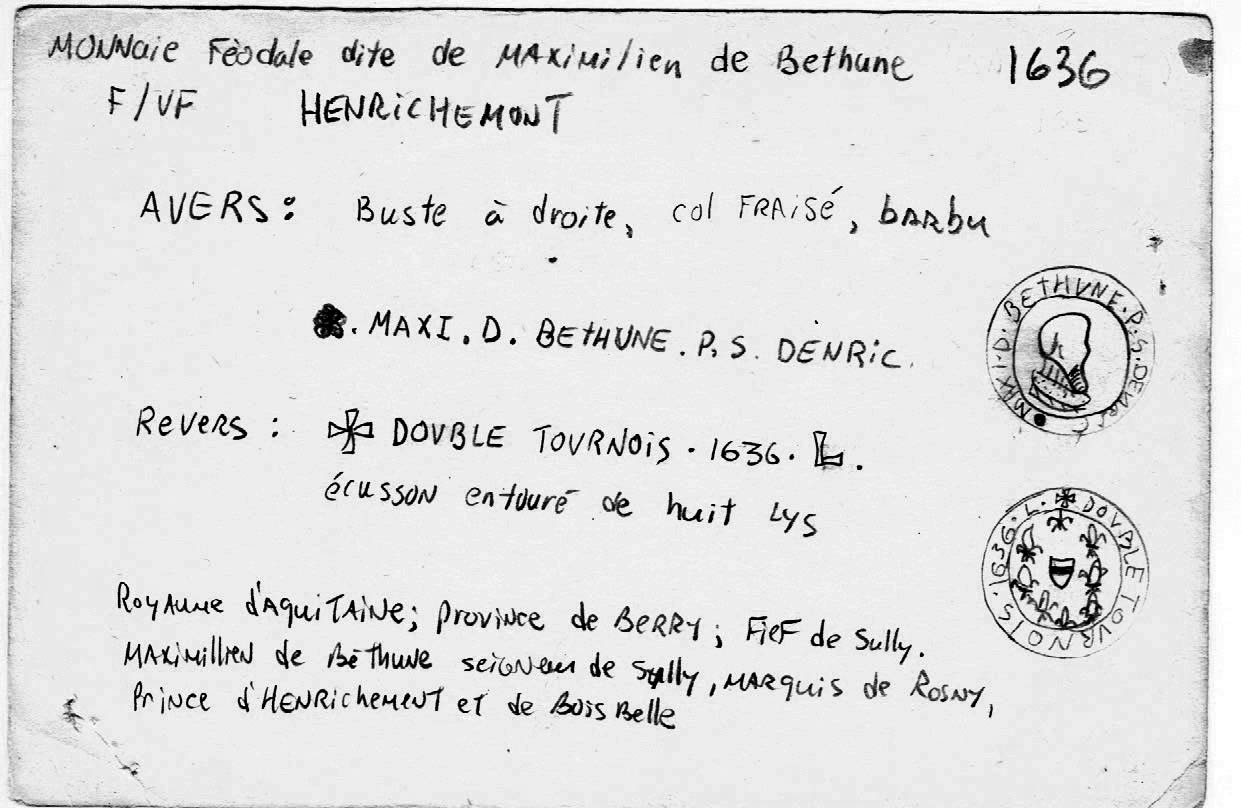 MONNAIE Féodale dite de MAXIMILIEN de Bethune 1636
F/VF HENRICHEMONT
AVERS : Buste à droite, col FRAISÉ, barbu
. MAXI . D . BETHUNE . P. S. DENRIC.
Revers : ✠ DOVBLE TOVRNOIS . 1636 . L .
écusson entouré de huit LYS
Royaume d'Aquitaine ; province de BERRY ; Fief de Sully.
MAXIMILLIEN de Béthune seigneur de Sully, MARQUIS de ROSNY,
Prince d'HENRICHEMENT et de BOISBELLE
MAXI . D . BETHUNE . P . S . DENRIC
✠ DOVBLE TOVRNOIS . 1636 . L .